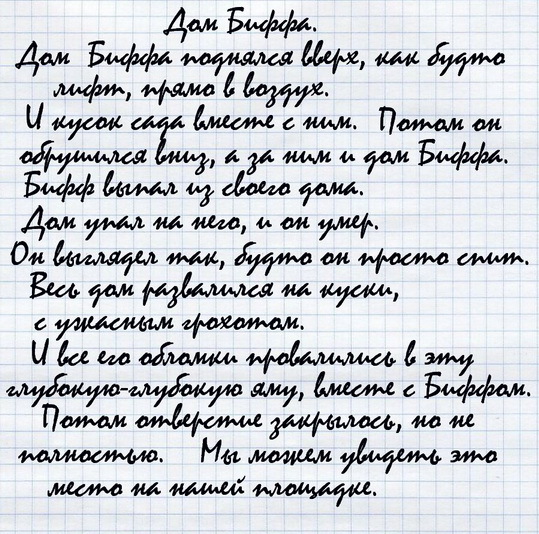 Дом Биффа.
Дом Биффа поднялся вверх, как будто
лифт, прямо в воздух.
И кусок сада вместе с ним. Потом он
обрушился вниз, а за ним и дом Биффа.
Бифф выпал из своего дома.
Дом упал на него, и он умер.
Он выглядел так, будто он просто спит.
Весь дом развалился на куски,
с ужасным грохотом.
И все его обломки провалились в эту
глубокую-глубокую яму, вместе с Биффом.
Потом отверстие закрылось, но не
полностью. Мы можем увидеть это
место на нашей площадке.